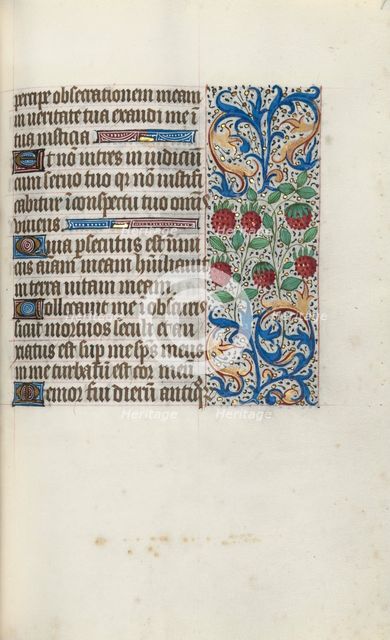 percipe obsecrationem meam
in veritate tua exaudi me i
tua iusticia
Et nõ intres in iudiciũ
cum servo tuo q̃ nõ iustifi
cabitur i conspectu tuo om̃is
vivens
Quia persecutus est inim̃
cus aĩam meam humiliavit
in terra vitam meam
Collocavit me i obscuris
sicut mortuos seculi et an
xiatus est sup me sp̃s meus
in me turbatũ est cor meũ
Memor fui dierũ antiq̃
Heritage
Heritage
Heritage